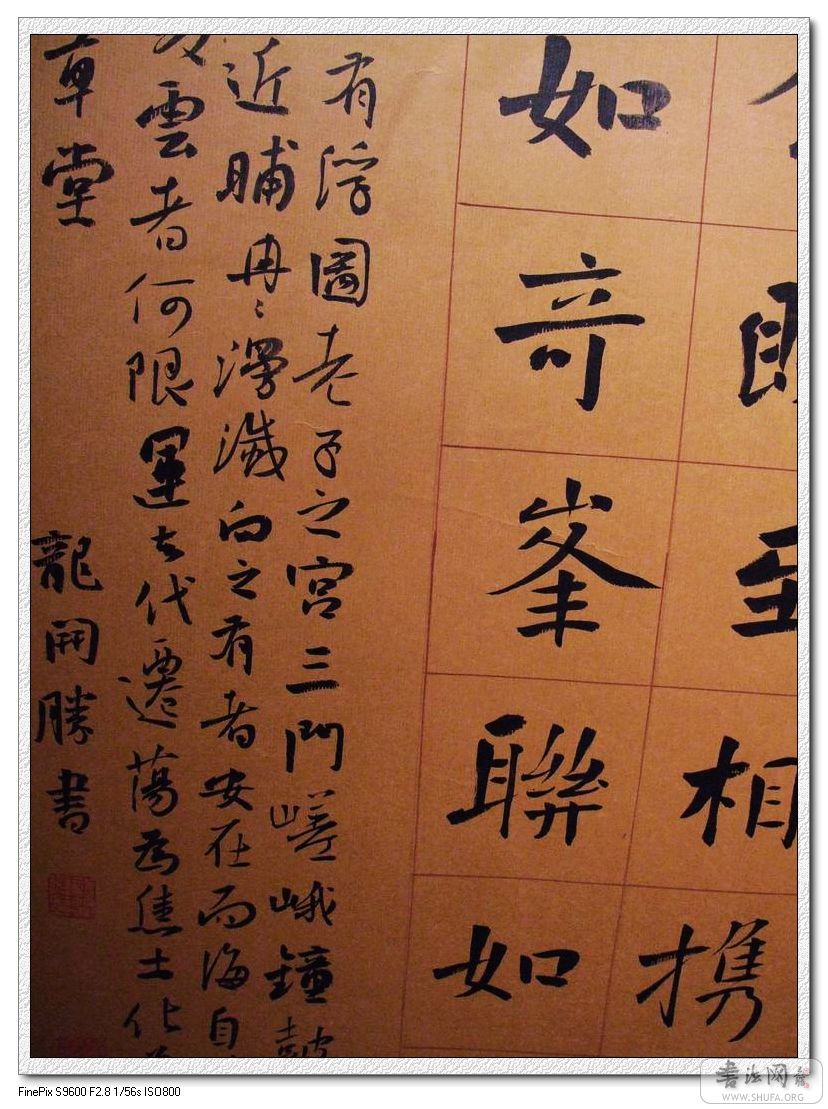 至相携
如奇峯聯如
有浮圖老子之宮三門嵯峨鐘鼓
近晡冉々漫滅向之有者安在而海自
雲者何限運去代遷蕩為焦土化
草堂 龍開勝書
FinePix S9600 F2.8 1/56s ISO800
書法网
WWW.SHUFA.ORG